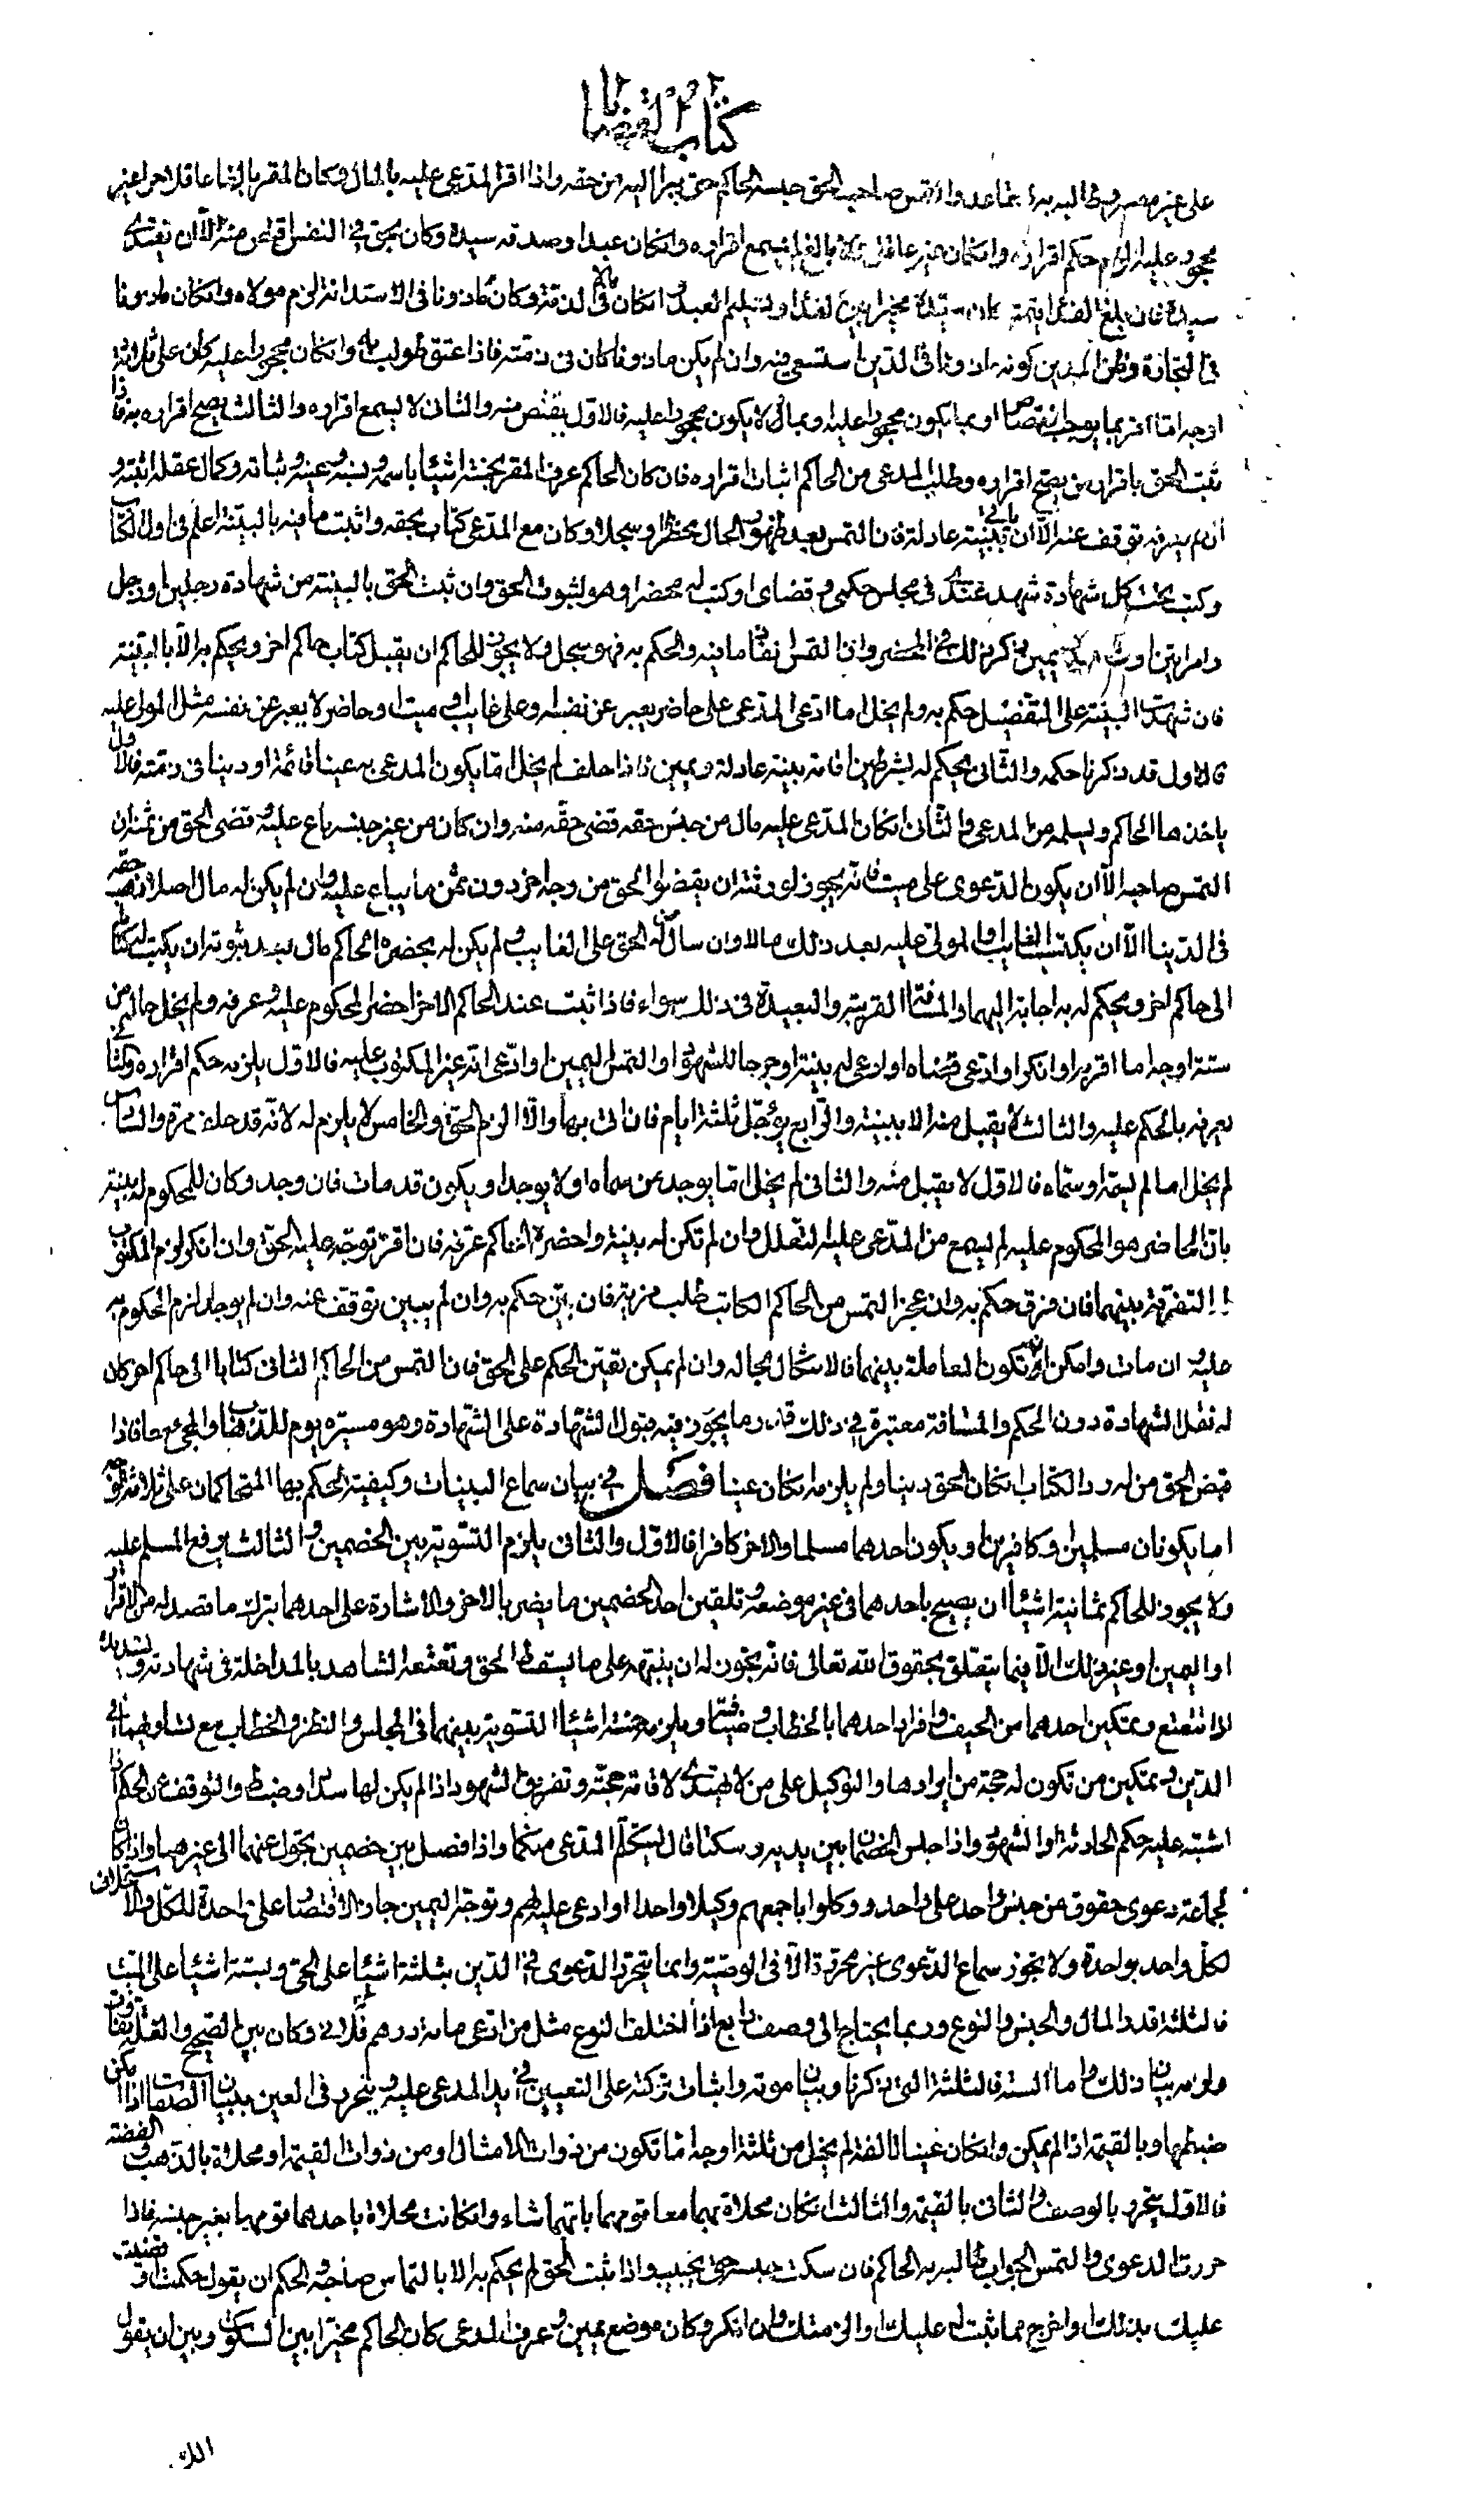 كتاب القضايا
على غير مضروبا اليه به التمس صاحب الحق حبسه الحاكم حتى يبرأ اليه من حقه واذا اقر المدعى عليه بالمال وكان المقر بالغا عاقلا حرا غير
محجور عليه لزم حكم اقراره وان كان غير عاقل او غير بالغ لم يسمع اقراره وان كان عبدا وصدقه سيده وكان بحق في النفس اقتص منه الا ان يفتديه
سيده فان بلغ الفداء قيمته كان سيده مخيرا بين الفداء وتسليم العبد وان كان بمال في ذمته وكان مأذونا في الاستدانة لزم مولاه وان كان مأذونا
في التجارة وظن المدين كونه مأذونا في الدين استسعى فيه وان لم يكن مأذونا كان في ذمته فاذا عتق طولب به وان كان محجورا عليه كان على ثلاثة
اوجه اما اقر بما يوجب القصاص او بما يكون محجورا عليه او بما لا يكون محجورا عليه فالاول يقتص منه والثاني لا يسمع اقراره والثالث يصح اقراره به فاذا
ثبت الحق باقرار من يصح اقراره وطلب المدعى من الحاكم اثبات اقراره فان كان الحاكم عرف المقر بخمسة اشياء باسمه ونسبه وعينه وثباته وكمال عقله اثبته و
ان لم يعرفه توقف عنه الا ان ياتي ببينة عادلة فان التمس بعد ظهور الحال محضرا وسجلا وكان مع المدعى كتاب بحقه واثبت ما فيه بالبينة اعلم في اول الكتاب
وكتب تحت كل شهادة شهد عندي في مجلس حكمي وقضاي او كتب له محضرا وهو لثبوت الحق وان ثبت الحق بالبينة من شهادة رجلين او رجل
وامراتين او شاهد ويمين ذكر ذلك في المحضر واذا التمس نفاذ ما فيه والحكم به فهو سجل ولا يجوز للحاكم ان يقبل كتاب حاكم اخر ويحكم به الا بالبينة
فان شهدت البينة على التفصيل حكم به ولم يخل اما ادعى المدعى على حاضر يعبر عن نفسه او على غايب او ميت او حاضر لا يعبر عن نفسه مثل المولى عليه
فالاول قد ذكرنا حكمه والثاني يحكم له بشرطين اقامة بينة عادلة ويمين فاذا حلف لم يخل اما يكون المدعى به عينا قائمة او دينا في ذمته فالاول
ياخذها الحاكم ويسلمه من المدعى والثاني ان كان المدعى عليه مال من جنس حقه قضى حقه منه وان كان من غير جنسه باع عليه وقضى الحق من ثمنه ان
التمس صاحبه الا ان يكون الدعوى على ميت فانه يجوز لورثته ان يقضوا الحق من وجه اخر دون ثمن ما يباع عليه وان لم يكن له مال اصلا حقه
في الدين الا ان يكتسب الغايب او المولى عليه بعد ذلك مالا وان سال من له الحق على الغايب ولم يكن له بحضرة الحاكم مال بعد ثبوته ان يكتب له كتابا
الى حاكم اخر ويحكم له به اجابه اليهما والمسافة القريبة والبعيدة في ذلك سواء فاذا ثبت عند الحاكم الاخر احضر المحكوم عليه وعرفه ولم يخل حاله من
ستة اوجه اما اقر به او انكر او ادعى قضاه او ادعى له بينة او جرحا للشهود او التمس اليمين او ادعى انه غير المكتوب عليه فالاول يلزمه حكم اقراره والثاني
يعرفه بالحكم عليه والثالث لا يقبل منه الا ببينة والرابع يؤجل ثلثة ايام فان اتى بها والا الزم الحق والخامس لا يلزم له لانه قد حلف مرة والسادس
لم يخل اما لم يسم او سماه فالاول لا يقبل منه والثاني لم يخل اما يوجد من سماه او لا يوجد او يكون قد مات فان وجد وكان للمحكوم له بينة
بان الحاضر هو المحكوم عليه لم يسمع من المدعى عليه التعلل وان لم تكن له بينة واحضره الحاكم عرفه فان اقر توجه عليه الحق وان انكر لزم المكتوب
التفرقة بينهما فان فرق حكم به وان عجز التمس من الحاكم الكاتب طلب مزية فان بين حكم به وان لم يبين توقف عنه وان لم يوجد لزم المحكوم به
عليه ان مات وامكن ان تكون المعاملة بينهما فالاشكال بحاله وان لم يمكن تعين الحكم على الحق فان التمس من الحاكم الثاني كتابا الى حاكم اخر كان
له نقل الشهادة دون الحكم والمسافة معتبرة في ذلك قدر ما يجوز فيه قبول الشهادة على الشهادة وهو مسيرة يوم للذهاب والمجئ معا فاذا
قبض الحق من له رد الكتاب ان كان الحق دينا ولم يلزمه ان كان عينا فصل في بيان سماع البينات وكيفية الحكم بها المتحاكمان على ثلاثة اوجه
اما يكونان مسلمين او كافرين او يكون احدهما مسلما والاخر كافرا فالاول والثاني يلزم التسوية بين الخصمين والثالث يرفع المسلم عليه
ولا يجوز للحاكم ثمانية اشياء ان يصيح باحدهما في غير موضعه وتلقين احد الخصمين ما يضر بالاخر والاشارة على احدهما بترك ما قصد له من الاقرار
او اليمين او غير ذلك الا فيما يتعلق بحقوق الله تعالى فانه يجوز له ان ينبهه على ما يسقط الحق وتعتعة الشاهد بالمداخلة في شهادته وتسديده
اذا تتعتع وتمكين احدهما من الحيف وافراد احدهما بالخطاب وضيافته ويلزمه خمسة اشياء التسوية بينهما في المجلس والنظر والخطاب مع تساويهما في
الدين وتمكين من تكون له حجة من ايرادها والتوكيل على من لا يهتدي لاقامة حجته وتفريق الشهود اذا لم يكن لها سداد وضبط والتوقف عن الحكم اذا
اشتبه عليه حكم الحادثة او الشهود واذا جلس الخصمان بين يديه وسكتا قال ليتكلم المدعى منكما واذا فصل بين خصمين تحول عنهما الى غيرهما واذا كان
لجماعة دعوى حقوق من جنس واحد على واحد ووكلوا باجمعهم وكيلا واحدا او ادعى عليه لهم وتوجه اليمين جاز الاقتصار على واحدة للكل والاستحلاف
لكل واحد بواحدة ولا يجوز سماع الدعوى غير محررة الا في الوصية وانما تحرر الدعوى في الدين بثلثة اشياء على الحي وبستة اشياء على الميت
فالثلثة قدر المال والجنس والنوع وربما يحتاج الى وصف رابع اذا اختلف النوع مثل من ادعى مائة درهم وكان بين الصحيح والغلة تفاوت
ولزمه بيان ذلك واما الستة فالثلثة التي ذكرنا وبيان موته واثبات تركته على التعيين في يد المدعى عليه ويحرر في العين ببيان الصفات اذا امكن
ضبطها وبالقيمة اذا لم يمكن وان كان عينا تالفة لم يخل من ثلثة اوجه اما تكون من ذوات الامثال او من ذوات القيمة او محلاة بالذهب والفضة
فالاول يحرر بالوصف والثاني بالقيمة والثالث ان كان محلاة بهما معا قومهما بايهما شاء وان كانت محلاة باحدهما قومها بغير جنسه فاذا
حررت الدعوى والتمس الجواب طالبه به الحاكم فان سكت حبسه حتى يجيب واذا ثبت الحق لم يحكم به الا بالتماس صاحبه والحكم ان يقول حكمت او قضيت
عليك بذلك او اخرج مما ثبت له عليك او الزمتك وان انكر وكان موضع يمين وعرف المدعى كان الحاكم مخيرا بين السكوت وبين ان يقول